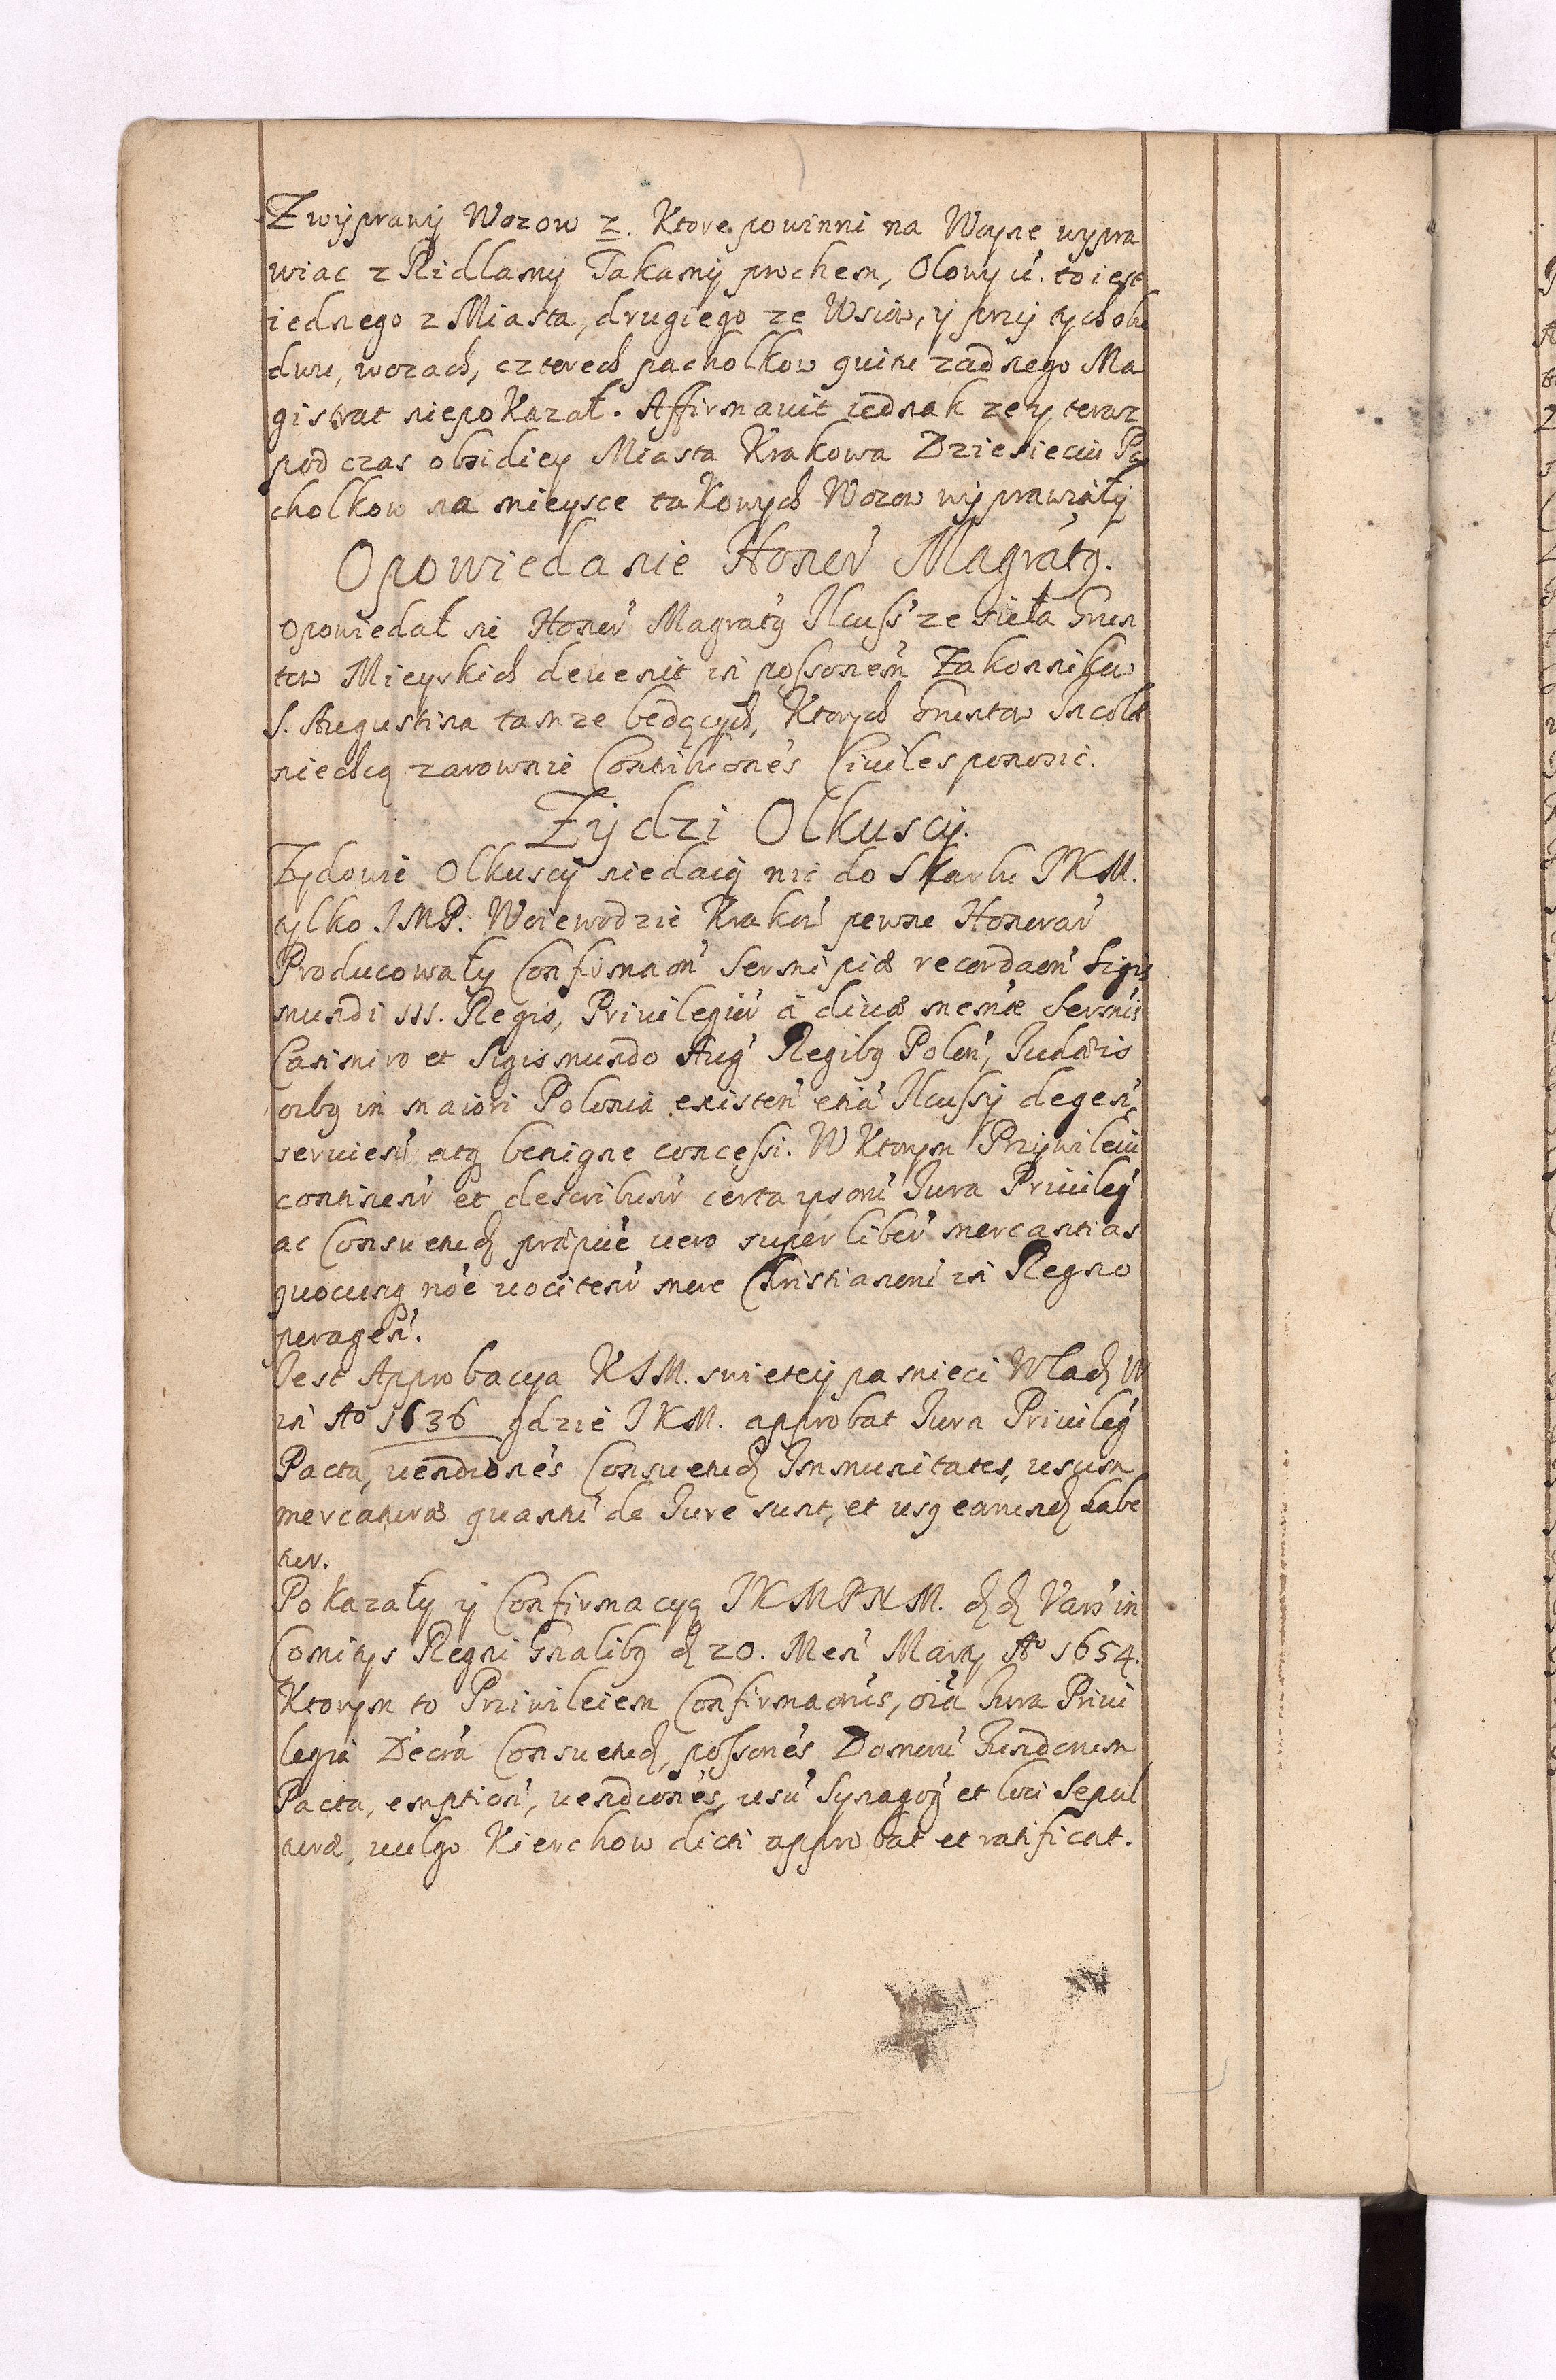 Z wyprawy Wozow 2. Ktore powinni na Woyne wypra
wiac z Ridlamy Takamy prochem, Olowy ũ. to iest
iednego z Miasta, drugiego ze Wsiow, y przy tych obu
dwu, wozach, czterech pacholkow quitu zadnego Ma
gistrat niepokazał. Affirmavit iednak ze y teraz
pod czas obsidiey Miasta Krakowa Dziesieciu Pa
cholkow na mieysce takowych Wozow wyprawiały
Opowiedanie Honer' Magratq.
Opowiedał sie Honer' Magratq Ilcuss' ze siełа Grun
tow Mieyskich devenit in possonem' Zakonnikow
S. Augustina tamze będących, Ktorych Gruntow Incolæ
niechcą zarownie Contributiones Civiles ponosic.
Zydzi Olkuscy.
Zydowie Olkuscy niedaią nic do Skarbu JKM.
tylko JMP. Woiewodzie Krakow' pewne Honorar'
Producowały Confirmaon' Sermi piæ recordaon' Sigis
mundi III. Regis, Privilegiu' a divæ mem'æ Serm'is
Casimiro et Sigismundo Aug' Regibq Polon', Judæis
oibq in maiori Polonia existen' etia' Ilcussy degen',
servien' atq benigne concessi. W Ktorym Przywileiu
continentur' et describuntur' certa ipsoru' Jura Privileg'
ac Consuetud præipue' vero super liber' mercantias
quocunq no'e vocitent' more Christianoru' in Regno
peragen'.
Jest Approbacya KJM. swietey pamieci Wlad IV
in Ao 1636 gdzie JKM. approbat Jura Privileg'
Pacta, vendiones' Consuetud Immunitates, usum
mercaturæ quantu' de Jure sunt, et usq earund habe
tur.
Pokazały y Confirmacyą JKMPNM. dd Vars' in
Comitys Regni Gnalibq d 20. Men' Marty Ao 1654.
Ktorym to Priwileiem Confirmaonis, oia' Jura Privi
legia Decra' Consuetud, possones' Domoru' Fundorum
Pacta, emption', vendiones', usu' Synagog' et loci Sepul
turæ, vulgo Kierchow dicti approbat et ratificat.